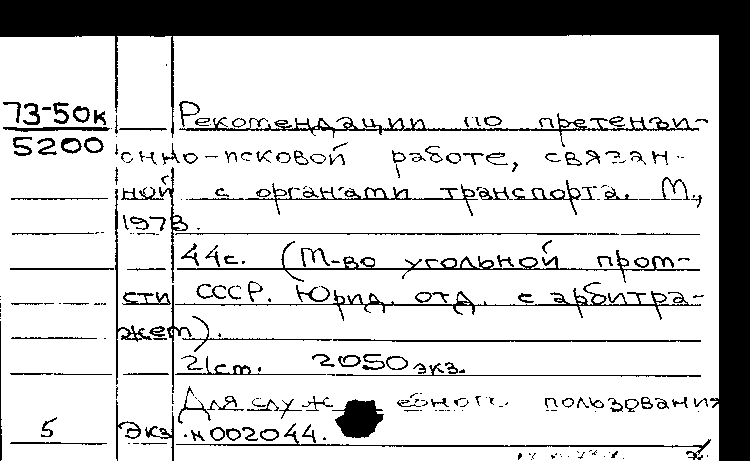 73-50к
5200
Рекомендации по претензи-
онно-исковой работе, связан-
ной с органами транспорта. М.,
1973.
44с. (М-во угольной пром-
сти СССР. Юрид. отд. с арбитра-
жем).
21см. 2050 экз.
Для служебного пользования
5 Экз. №002044.